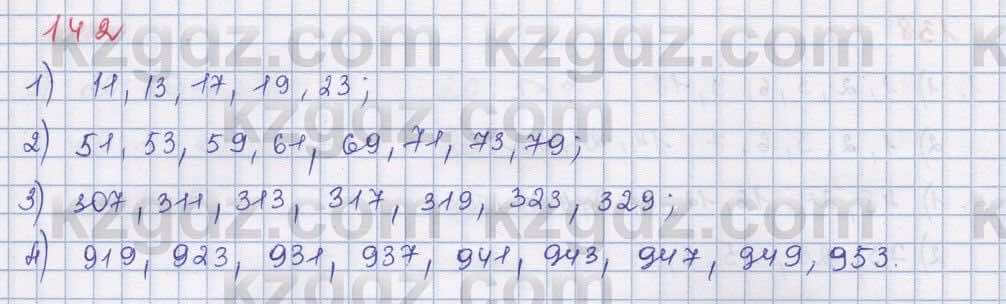 142
kzgdz.com kzgdz.com
1) 11, 13, 17, 19, 23;
kzgdz.com
2) 51, 53, 59, 61, 69, 71, 73, 79;
3) 307, 311, 313, 317, 319, 323, 329;
kzgdz.com kzgdz.com
4) 919, 923, 931, 937, 941, 943, 947, 949, 953.
kzgdz.com